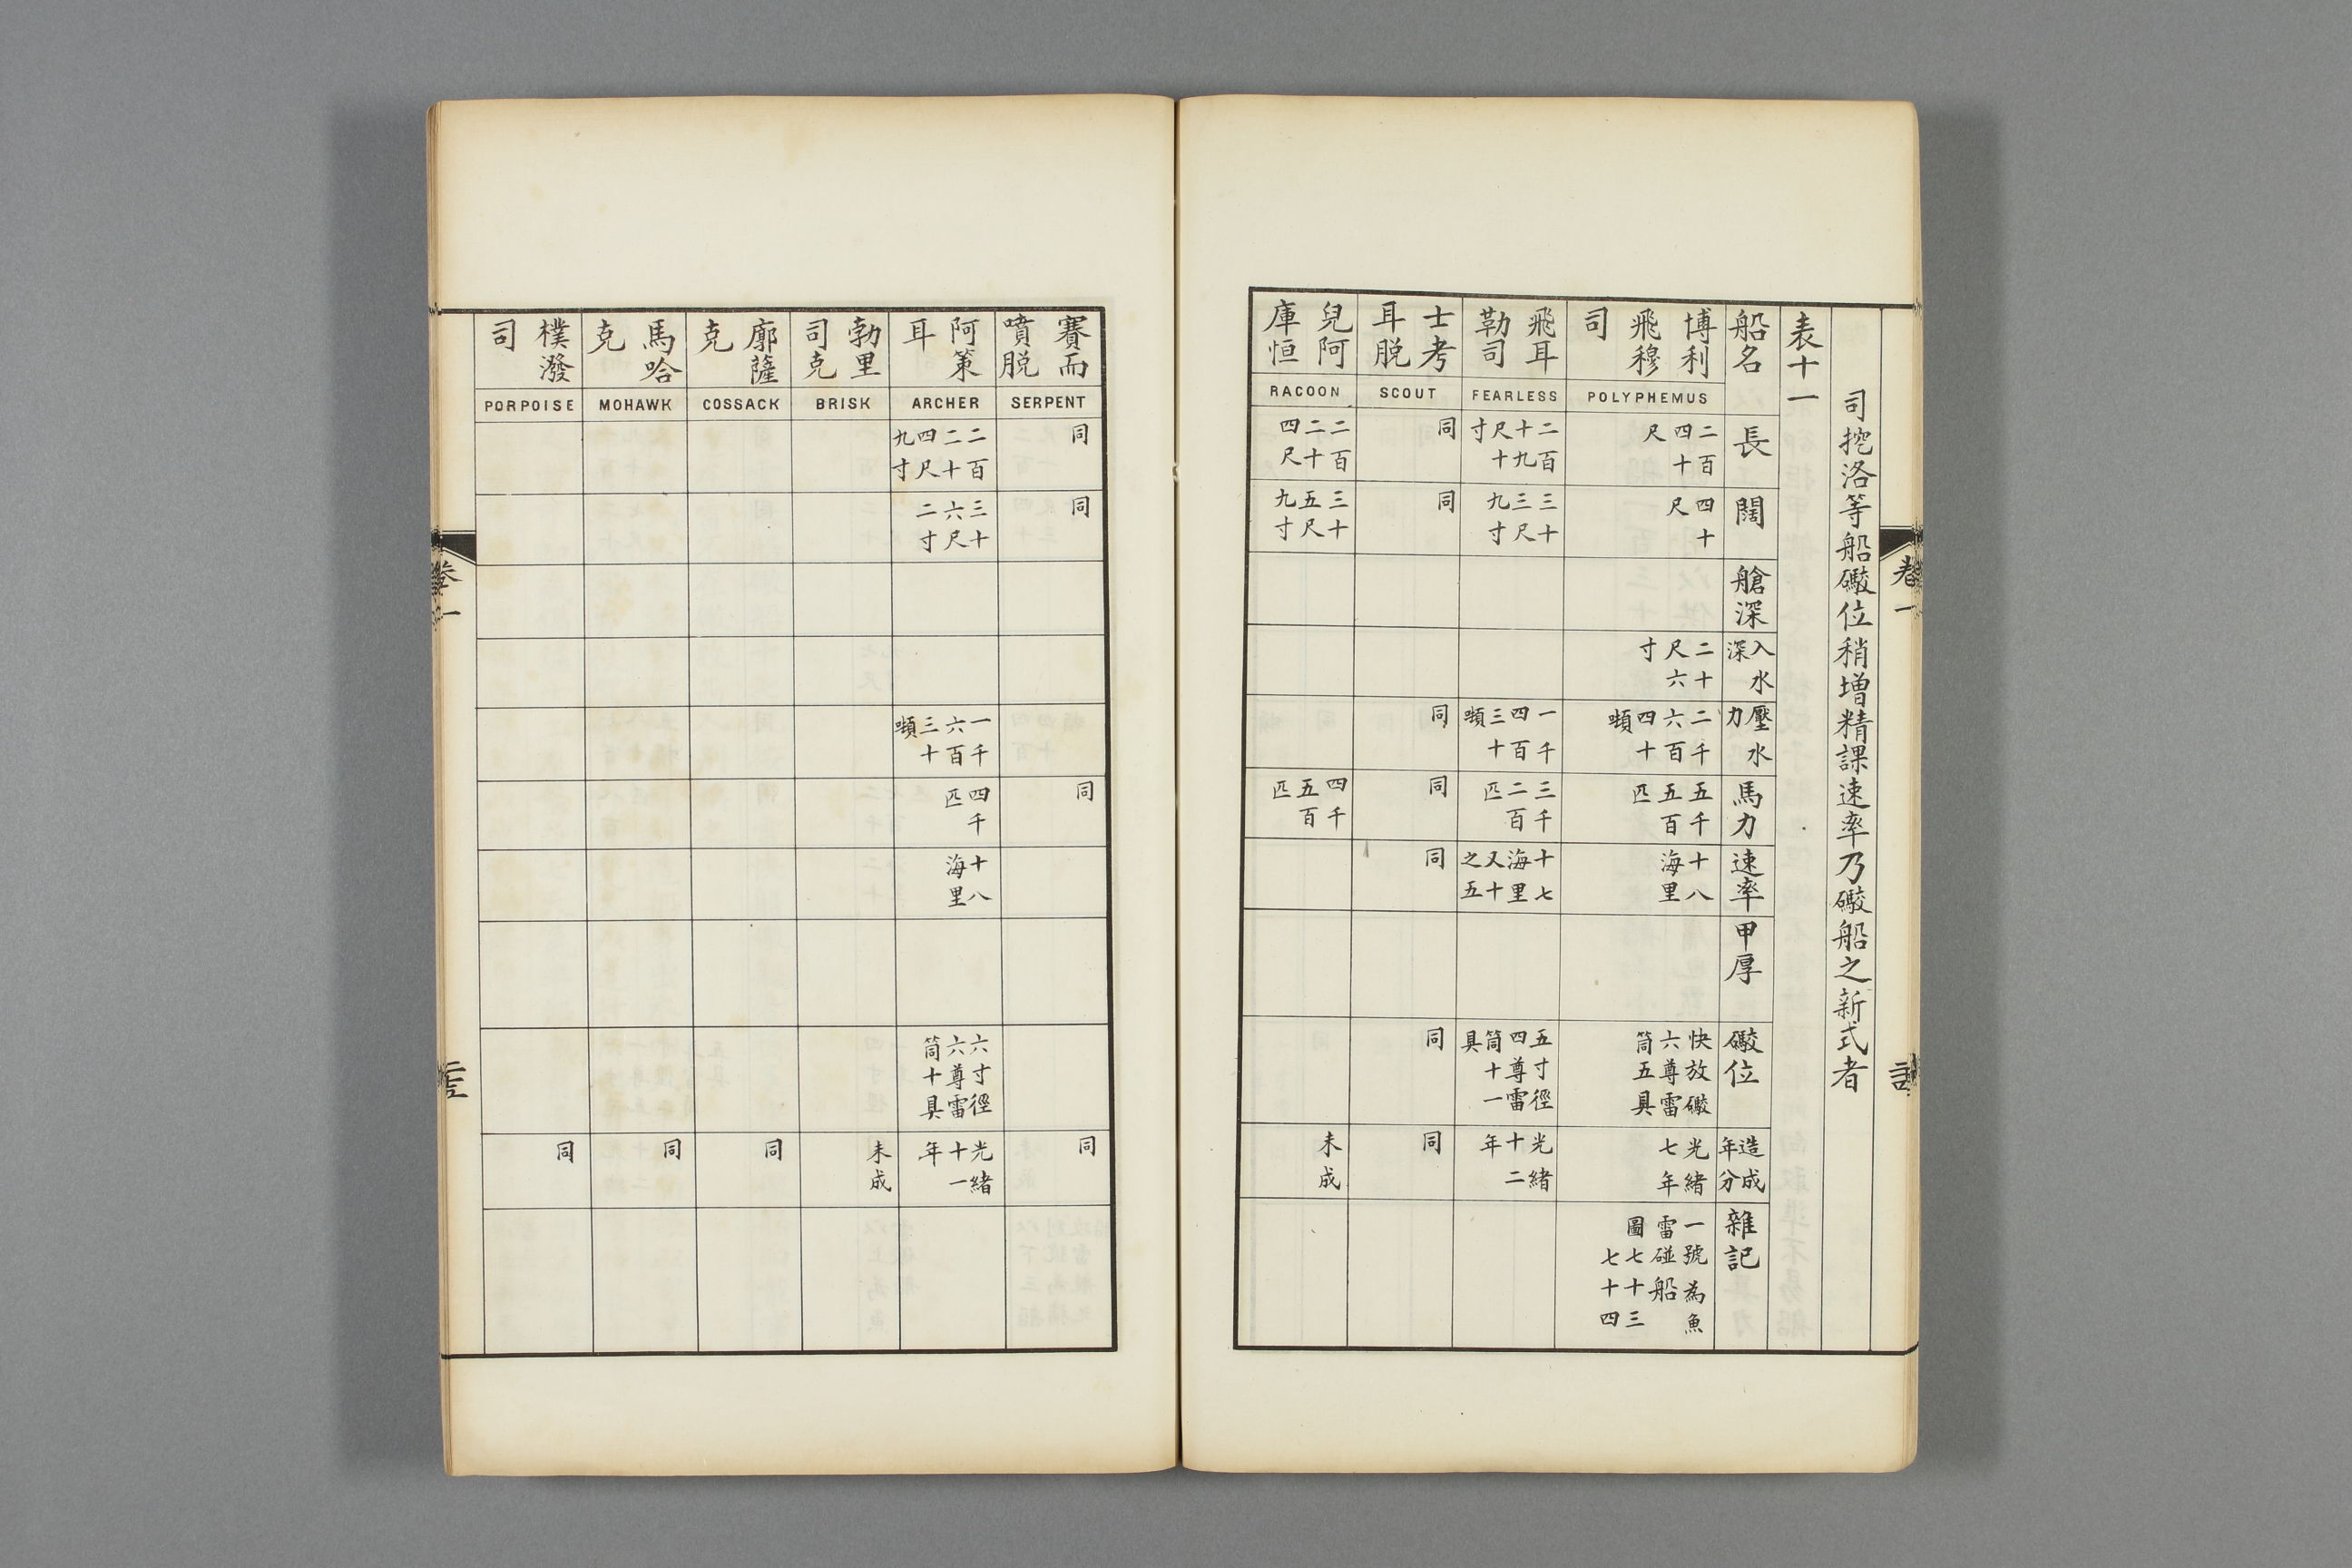 司挖洛等船礮位稍增精課速率乃礮船之新式者
表十一
船名
長
闊
艙深
入水深
壓水力
馬力
速率
甲厚
礮位
造成年分
雜記
博利飛穆司
POLYPHEMUS
二百四十尺
四十尺
二十尺六寸
二千六百四十噸
五千五百匹
十八海里
快放礮六尊雷筒五具
光緒七年
一號為魚雷碰船圖七十三七十四
飛耳勒司
FEARLESS
二百十九尺十寸
三十三尺九寸
一千四百三十噸
三千二百匹
十七海里又十之五
五寸徑四尊雷筒十一具
光緒十二年
士考耳脫
SCOUT
同
同
同
同
同
同
同
兒阿庫恒
RACOON
二百二十四尺
三十五尺九寸
四千五百匹
未成
卷一
賽而噴脫
SERPENT
同
同
同
同
阿策耳
ARCHER
二百二十四尺九寸
三十六尺二寸
一千六百三十噸
四千匹
十八海里
六寸徑六尊雷筒十具
光緒十一年
勃里司克
BRISK
未成
廓薩克
COSSACK
同
馬哈克
MOHAWK
同
樸潑司
PORPOISE
同
卷一